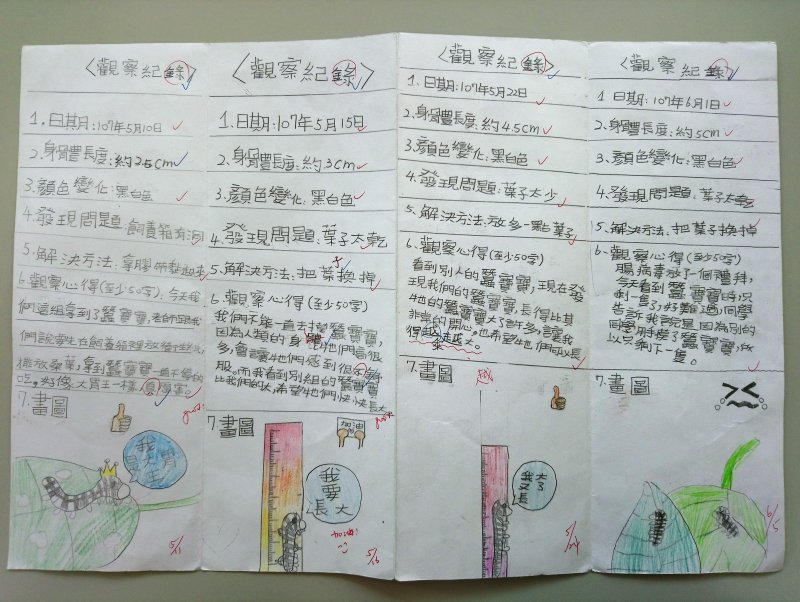 〈觀察紀錄〉
1.日期:107年5月10日
2.身體長度:約2.5cm
3.顏色變化:黑白色
4.發現問題:飼養箱有洞
5.解決方法:拿膠帶黏起來
6.觀察心得(至少50字):今天我
們這組拿到了蠶寶寶,老師跟我
們說要先在飼養箱裡放衛生紙,
擺放桑葉,拿到蠶寶寶一直不停的
吃。好像大胃王一樣,真厲害。
7.畫圖
我是大胃王
5/11
〈觀察紀錄〉
1.日期:107年5月15日
2.身體長度:約3cm
3.顏色變化:黑白色
4.發現問題:葉子太乾
5.解決方法:把葉換掉
6.觀察心得(至少50字)
我們不能一直去摸蠶寶寶,
因為人類的身體比牠們高很
多,會讓牠們感到很不舒
服。而我看到別組的蠶寶寶
比我們的大,希望牠們快快長大
7.畫圖
加油
我
要
長大
加油!
5/16
〈觀察紀錄〉
1.日期:107年5月22日
2.身體長度:約4.5cm
3.顏色變化:黑白色
4.發現問題:葉子太少
5.解決方法:放多一點葉子
6.觀察心得(至少50字)
看到別人的蠶寶寶,現在發
現我們的蠶寶寶,長得比其
他的蠶寶寶大了許多,讓我
非常的開心,也希望牠們可以長
得越來越大。
7.畫圖
我又長大了
5/24
〈觀察紀錄〉
1.日期:107年6月1日
2.身體長度:約5cm
3.顏色變化:黑白色
4.發現問題:葉子太乾
5.解決方法:把葉子換掉
6.觀察心得(至少50字)
腸病毒放了一個禮拜,
今天看到蠶寶寶時,只
剩一隻了,好難過,同學
告訴我說是因為別的
同學用掉了蠶寶寶,所
以只剩下一隻。
7.畫圖
6/5